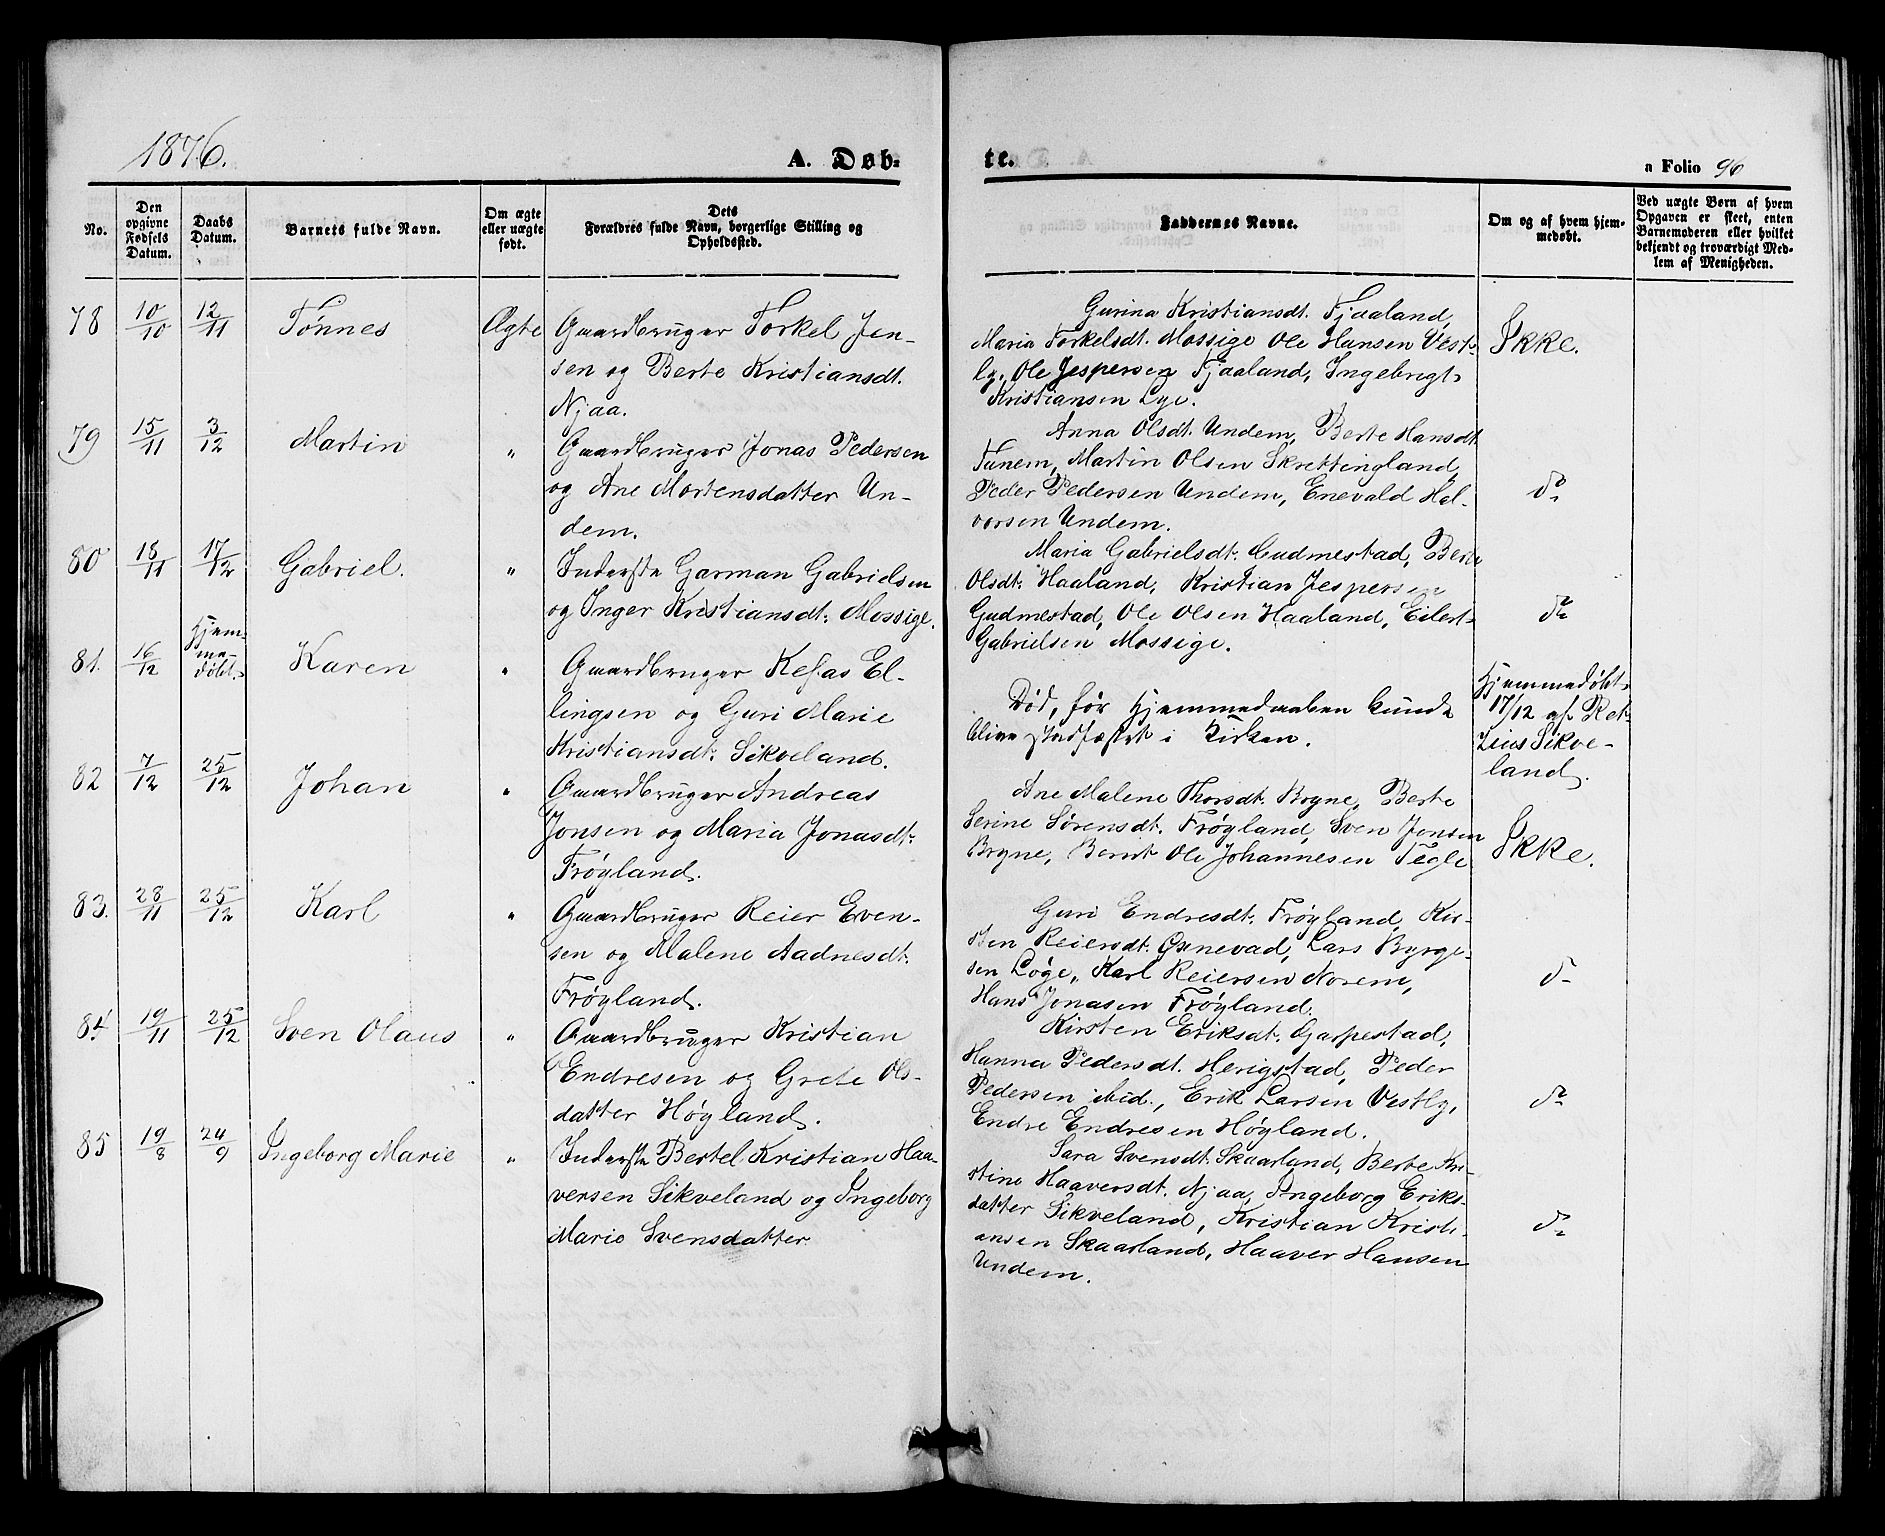 1876.
A. Døb-
te.
a Folio 96
No.
Den
opgivne
Fødsels
Datum.
Daabs
Datum.
Barnets fulde Navn.
Om ægte
eller uægte
født.
Dets
Forældres fulde Navn, borgerlige Stilling og
Opholdssted.
Faddernes Navne.
Om og af hvem hjem-
medøbt.
Ved uægte Børn af hvem
Opgaven er skeet, enten
Barnemoderen eller hvilket
bekjendt og troværdigt Med-
lem af Menigheden.
78 10/10 12/11 Tönnes Ægte Gaardbruger Torkel Jen-
sen og Berte Kristiansdt.
Njaa.
Gurina Kristiansdt. Fjaaland,
Maria Torkelsdt. Mossige Ole Hansen Vest-
ly, Ole Jespersen Fjaaland, Ingebrigt
Kristiansen Lye.
Ikke.
79 15/11 3/12 Martin " Gaardbruger Jonas Pedersen
og Ane Mortensdatter Un-
dem.
Anna Olsdt. Undem, Berte Hansdt.
Tunem, Martin Olsen Skrettingland,
Peder Pedersen Undem, Enevald Hal-
vorsen Undem.
do
80 15/11 17/12 Gabriel. " Inderste Garman Gabrielsen
og Inger Kristiansdt: Mossige.
Maria Gabrielsdt: Gudmestad, Berte
Olsdt: Haaland, Kristian Jespersen
Gudmestad, Ole Olsen Haaland, Eilert
Gabrielsen Mossige.
do
81. 16/12 Hjem-
ma-
døbt. Karen " Gaardbruger Kefas El-
lingsen og Guri Marie
Kristiansdt: Sikveland.
Død, før Hjemmedaaben kunde
blive stadfæstet i Kirken.
Hjemmedøbt
17/12 af Rek-
Sikve-
land.
82 7/12 25/12 Johan " Gaardbruger Andreas
Jonsen og Maria Jonasdt:
Frøyland.
Ane Malene Thorsdt. Bryne, Berte
Serine Sørensdt. Frøyland, Sven Jonsen
Bryne, Bernt Ole Johannesen Tegle
Ikke.
83. 28/11 25/12 Karl " Gaardbruger Reier Even-
sen og Malene Aadnesdt:
Frøyland.
Guri Endresdt: Frøyland, Kir-
sten Reiersdt: Øxnevad, Lars Byrge-
sen Løge, Karl Reiersen Norem,
Hans Jonasen Frøyland.
do
84. 19/11 25/12 Sven Olaus " Gaardbruger Kristian
Endresen og Grete Ols-
datter Høyland.
Kirsten Eriksdt: Garpestad,
Hanna Pedersdt. Herigstad, Peder
Pedersen ibid., Erik Larsen Vestly,
Endre Endresen Høyland.
do
85 19/8 24/9 Ingeborg Marie " Inderste Bertel Kristian Haa-
versen Sikveland og Ingeborg
Marie Svensdatter
Sara Svensdt: Skaarland, Berte Kri-
stine Haaversdt. Njaa, Ingeborg Eriks-
datter Sikveland, Kristian Kristi-
ansen Skaarland, Haaver Hansen
Undem.
do